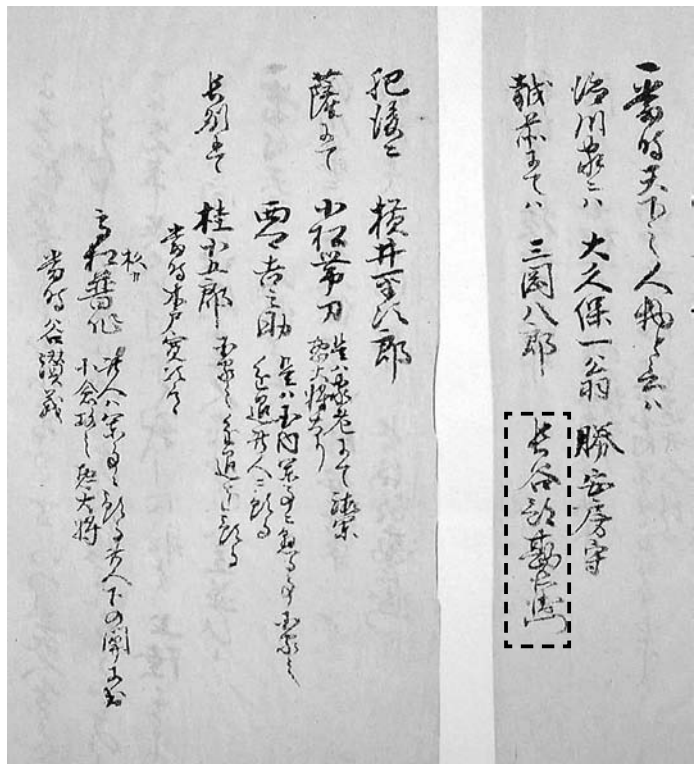 一當時天下之人物と云ハ
徳川家ニハ 大久保一翁 勝安房守
越前にてハ 三岡八郎 長谷部勘右衛門
肥後ニ 横井平四郎
薩にて 小松帯刀 是ハ家老にて海軍
惣大将なり
西郷吉之助 是ハ国内軍事に懸る事国家之
進退此人ニ預る
長州にて 桂小五郎 国家之進退を預る
當時木戸寛次郎
高松晋作 此人ハ軍事ニ預る此人下の関ニ出
小倉攻之惣大将
當時谷潜蔵